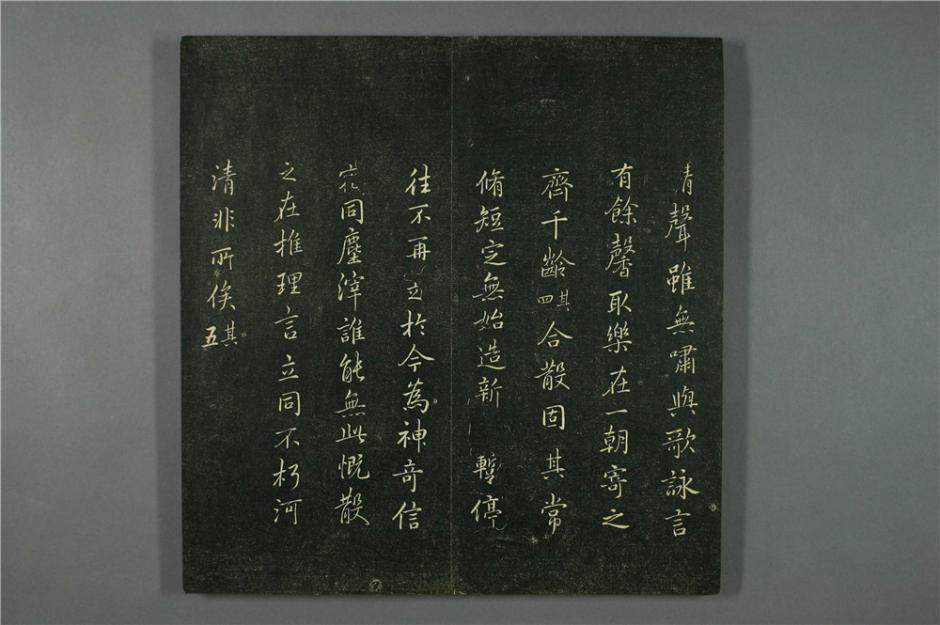 青聲雖無嘯與歌詠言
有餘馨取樂在一朝寄之
齊千齡其四合散固其常
脩短定無始造新 暫停
往不再 於今為神奇信
同塵滓誰能無此慨散
之在推理言立同不朽河
清非所俟其五